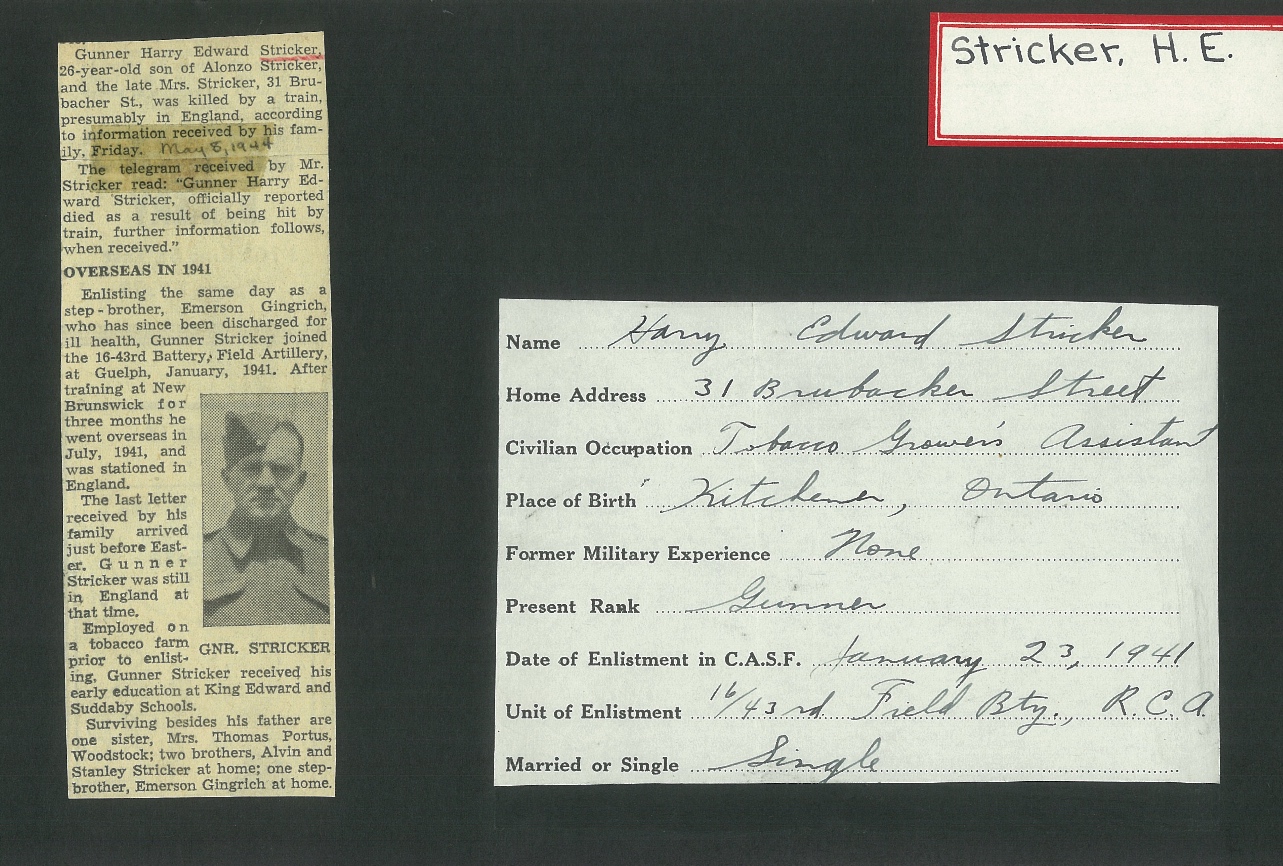 Gunner Harry Edward Stricker,
26-year-old son of Alonzo Stricker,
and the late Mrs. Stricker, 31 Bru-
bacher St., was killed by a train,
presumably in England, according
to information received by his fam-
ily, Friday. May 8, 1944
The telegram received by Mr.
Stricker read: "Gunner Harry Ed-
ward Stricker, officially reported
died as a result of being hit by
train, further information follows,
when received."
OVERSEAS IN 1941
Enlisting the same day as a
step-brother, Emerson Gingrich,
who has since been discharged for
ill health, Gunner Stricker joined
the 16-43rd Battery, Field Artillery,
at Guelph, January, 1941. After
training at New
Brunswick for
three months he
went overseas in
July, 1941, and
was stationed in
England.
The last letter
received by his
family arrived
just before East-
er. Gunner
Stricker was still
in England at
that time.
Employed on
a tobacco farm
prior to enlist-
GNR. STRICKER
ing, Gunner Stricker received his
early education at King Edward and
Suddaby Schools.
Surviving besides his father are
one sister, Mrs. Thomas Portus,
Woodstock; two brothers, Alvin and
Stanley Stricker at home; one step-
brother, Emerson Gingrich at home.
Stricker, H. E.
Name Harry Edward Stricker
Home Address 31 Brubacker Street
Civilian Occupation Tobacco Grower's Assistant
Place of Birth Kitchener, Ontario
Former Military Experience None
Present Rank Gunner
Date of Enlistment in C.A.S.F. January 23, 1941
Unit of Enlistment 16/43rd Field Bty., R.C.A.
Married or Single Single